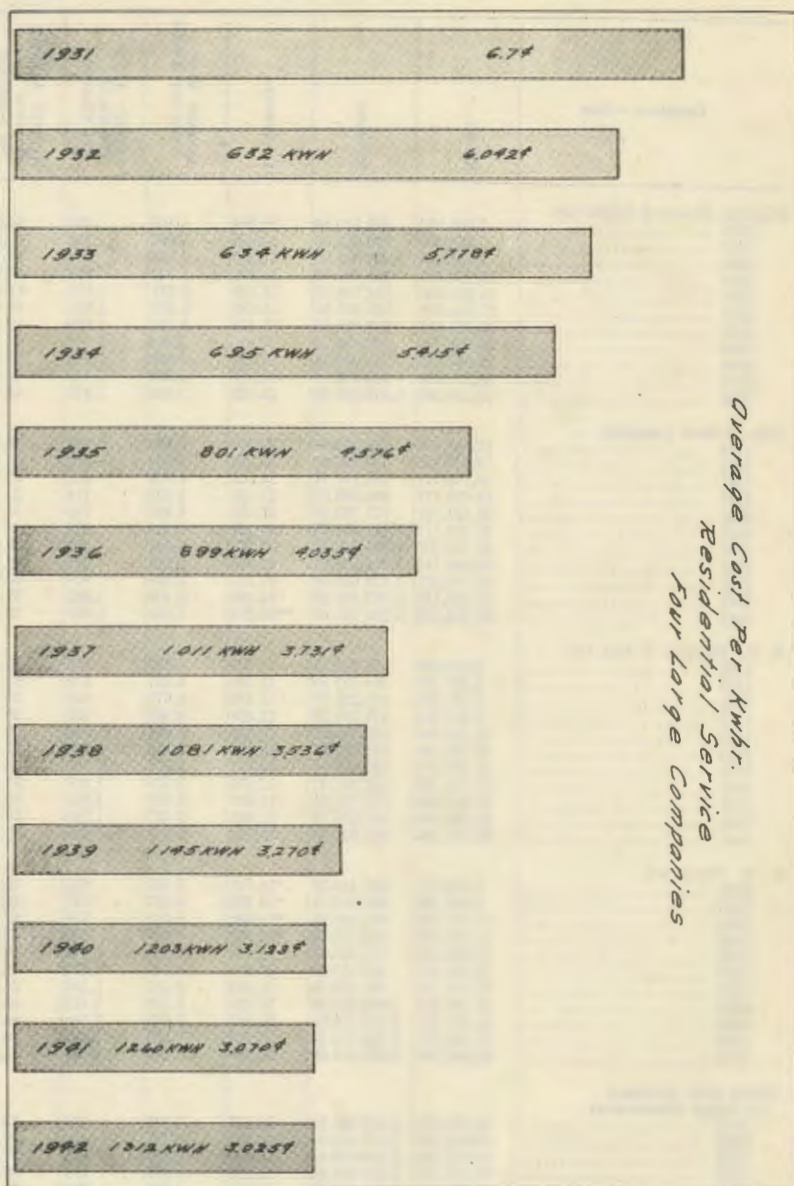 1931 6.7¢
1932 632 KWH 6.042¢
1933 634 KWH 5.778¢
1934 695 KWH 5.415¢
1935 801 KWH 4.576¢
1936 899 KWH 4.035¢
1937 1011 KWH 3.731¢
1938 1081 KWH 3.536¢
1939 1145 KWH 3.270¢
1940 1203 KWH 3.123¢
1941 1260 KWH 3.070¢
1942 1312 KWH 3.025¢
Average Cost Per Kwhr.
Residential Service
Four Large Companies